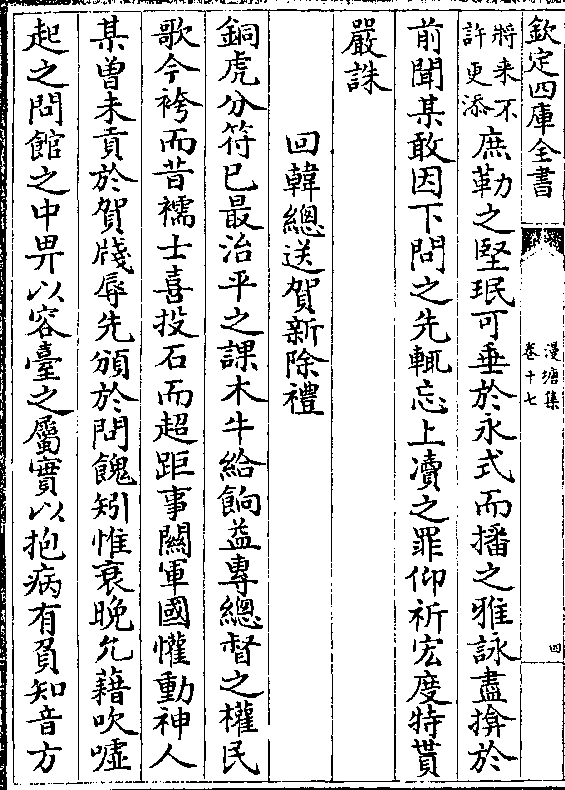 欽定四庫全書
漫塘集
卷十七
四
將来不
許更添
庶勒之堅珉可垂於永式而播之雅詠盡揜於
前聞某敢因下問之先輒忘上凟之罪仰祈宏度特貰
嚴誅
回韓總送賀新除禮
銅虎分符已最治平之課木牛給餉益專總督之權民
歌今袴而昔襦士喜投石而超距事闗軍國懽動神人
某曽未貢於賀牋辱先頒於問餽矧惟衰晚允藉吹噓
起之問館之中畀以容臺之屬實以抱病有負知音方